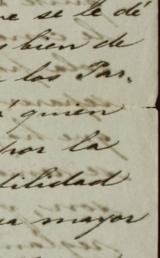 se le dé
bien de
los Par-
quien
por la
tilidad
mayor